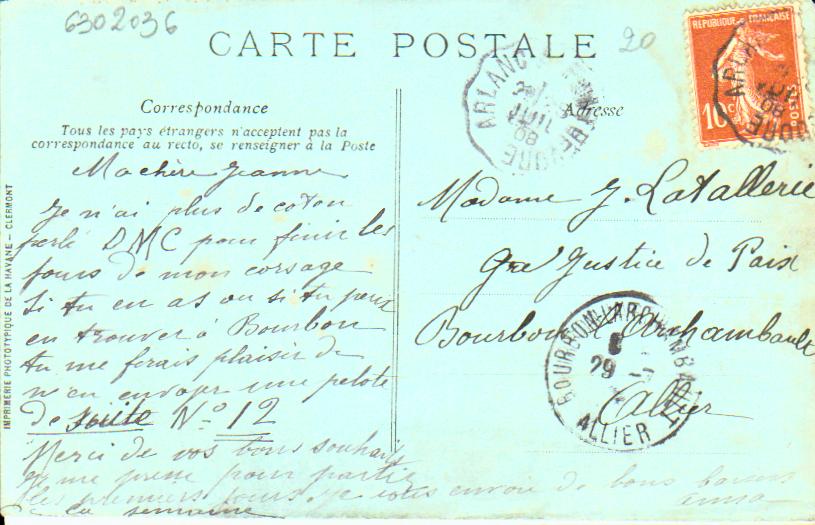 6302036
CARTE POSTALE
20
REPUBLIQUE FRANÇAISE
10c
POSTES
ARLANC
JUIL
08
Correspondance
Adresse
Tous les pays étrangers n'acceptent pas la
correspondance au recto, se renseigner à la Poste
Ma chère Jeanne
Je n'ai plus de coton
perlé DMC pour finir les
jours de mon corsage
Si tu en as ou si tu peux
en trouver à Bourbon
tu me ferais plaisir de
m'en envoyer une pelote
de suite N° 12
Merci de vos bons souhaits
pour partir
les premiers jours je vous envoie de bons baisers
la semaine
Madame J. Latallerie
Gre Justice de Paix
Bourbon l'Archambault
Allier
BOURBON-L'ARCHAMBAULT
29
ALLIER
IMPRIMERIE PHOTOTYPIQUE DE LA HAVANE — CLERMONT